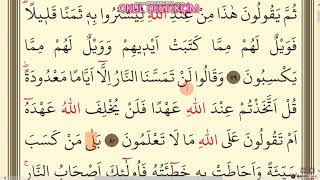 OKUL DESTEKCİM
ثُمَّ يَقُولُونَ هٰذَا مِنْ عِنْدِ اللّٰهِ لِيَشْتَرُوا بِه۪ ثَمَنًا قَل۪يلًا
فَوَيْلٌ لَهُمْ مِمَّا كَتَبَتْ اَيْد۪يهِمْ وَوَيْلٌ لَهُمْ مِمَّا
يَكْسِبُونَ ٧٩ وَقَالُوا لَنْ تَمَسَّنَا النَّارُ اِلَّٓا اَيَّامًا مَعْدُودَةً
قُلْ اَتَّخَذْتُمْ عِنْدَ اللّٰهِ عَهْدًا فَلَنْ يُخْلِفَ اللّٰهُ عَهْدَهُ
اَمْ تَقُولُونَ عَلَى اللّٰهِ مَا لَا تَعْلَمُونَ ٨٠ بَلٰى مَنْ كَسَبَ
سَيِّئَةً وَاَحَاطَتْ بِه۪ خَط۪ٓيـَٔتُهُ فَاُو۬لٰٓئِكَ اَصْحَابُ النَّارِ